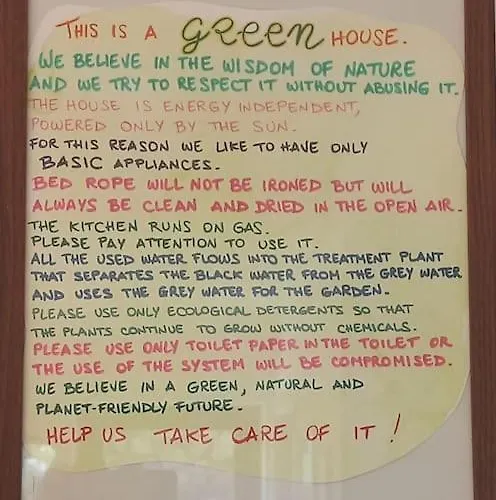 THIS IS A green HOUSE.
WE BELIEVE IN THE WISDOM OF NATURE
AND WE TRY TO RESPECT IT WITHOUT ABUSING IT.
THE HOUSE IS ENERGY INDEPENDENT,
POWERED ONLY BY THE SUN.
FOR THIS REASON WE LIKE TO HAVE ONLY
BASIC APPLIANCES.
BED ROPE WILL NOT BE IRONED BUT WILL
ALWAYS BE CLEAN AND DRIED IN THE OPEN AIR.
THE KITCHEN RUNS ON GAS.
PLEASE PAY ATTENTION TO USE IT.
ALL THE USED WATER FLOWS INTO THE TREATMENT PLANT
THAT SEPARATES THE BLACK WATER FROM THE GREY WATER
AND USES THE GREY WATER FOR THE GARDEN.
PLEASE USE ONLY ECOLOGICAL DETERGENTS SO THAT
THE PLANTS CONTINUE TO GROW WITHOUT CHEMICALS.
PLEASE USE ONLY TOILET PAPER IN THE TOILET OR
THE USE OF THE SYSTEM WILL BE COMPROMISED.
WE BELIEVE IN A GREEN, NATURAL AND
PLANET-FRIENDLY FUTURE.
HELP US TAKE CARE OF IT!